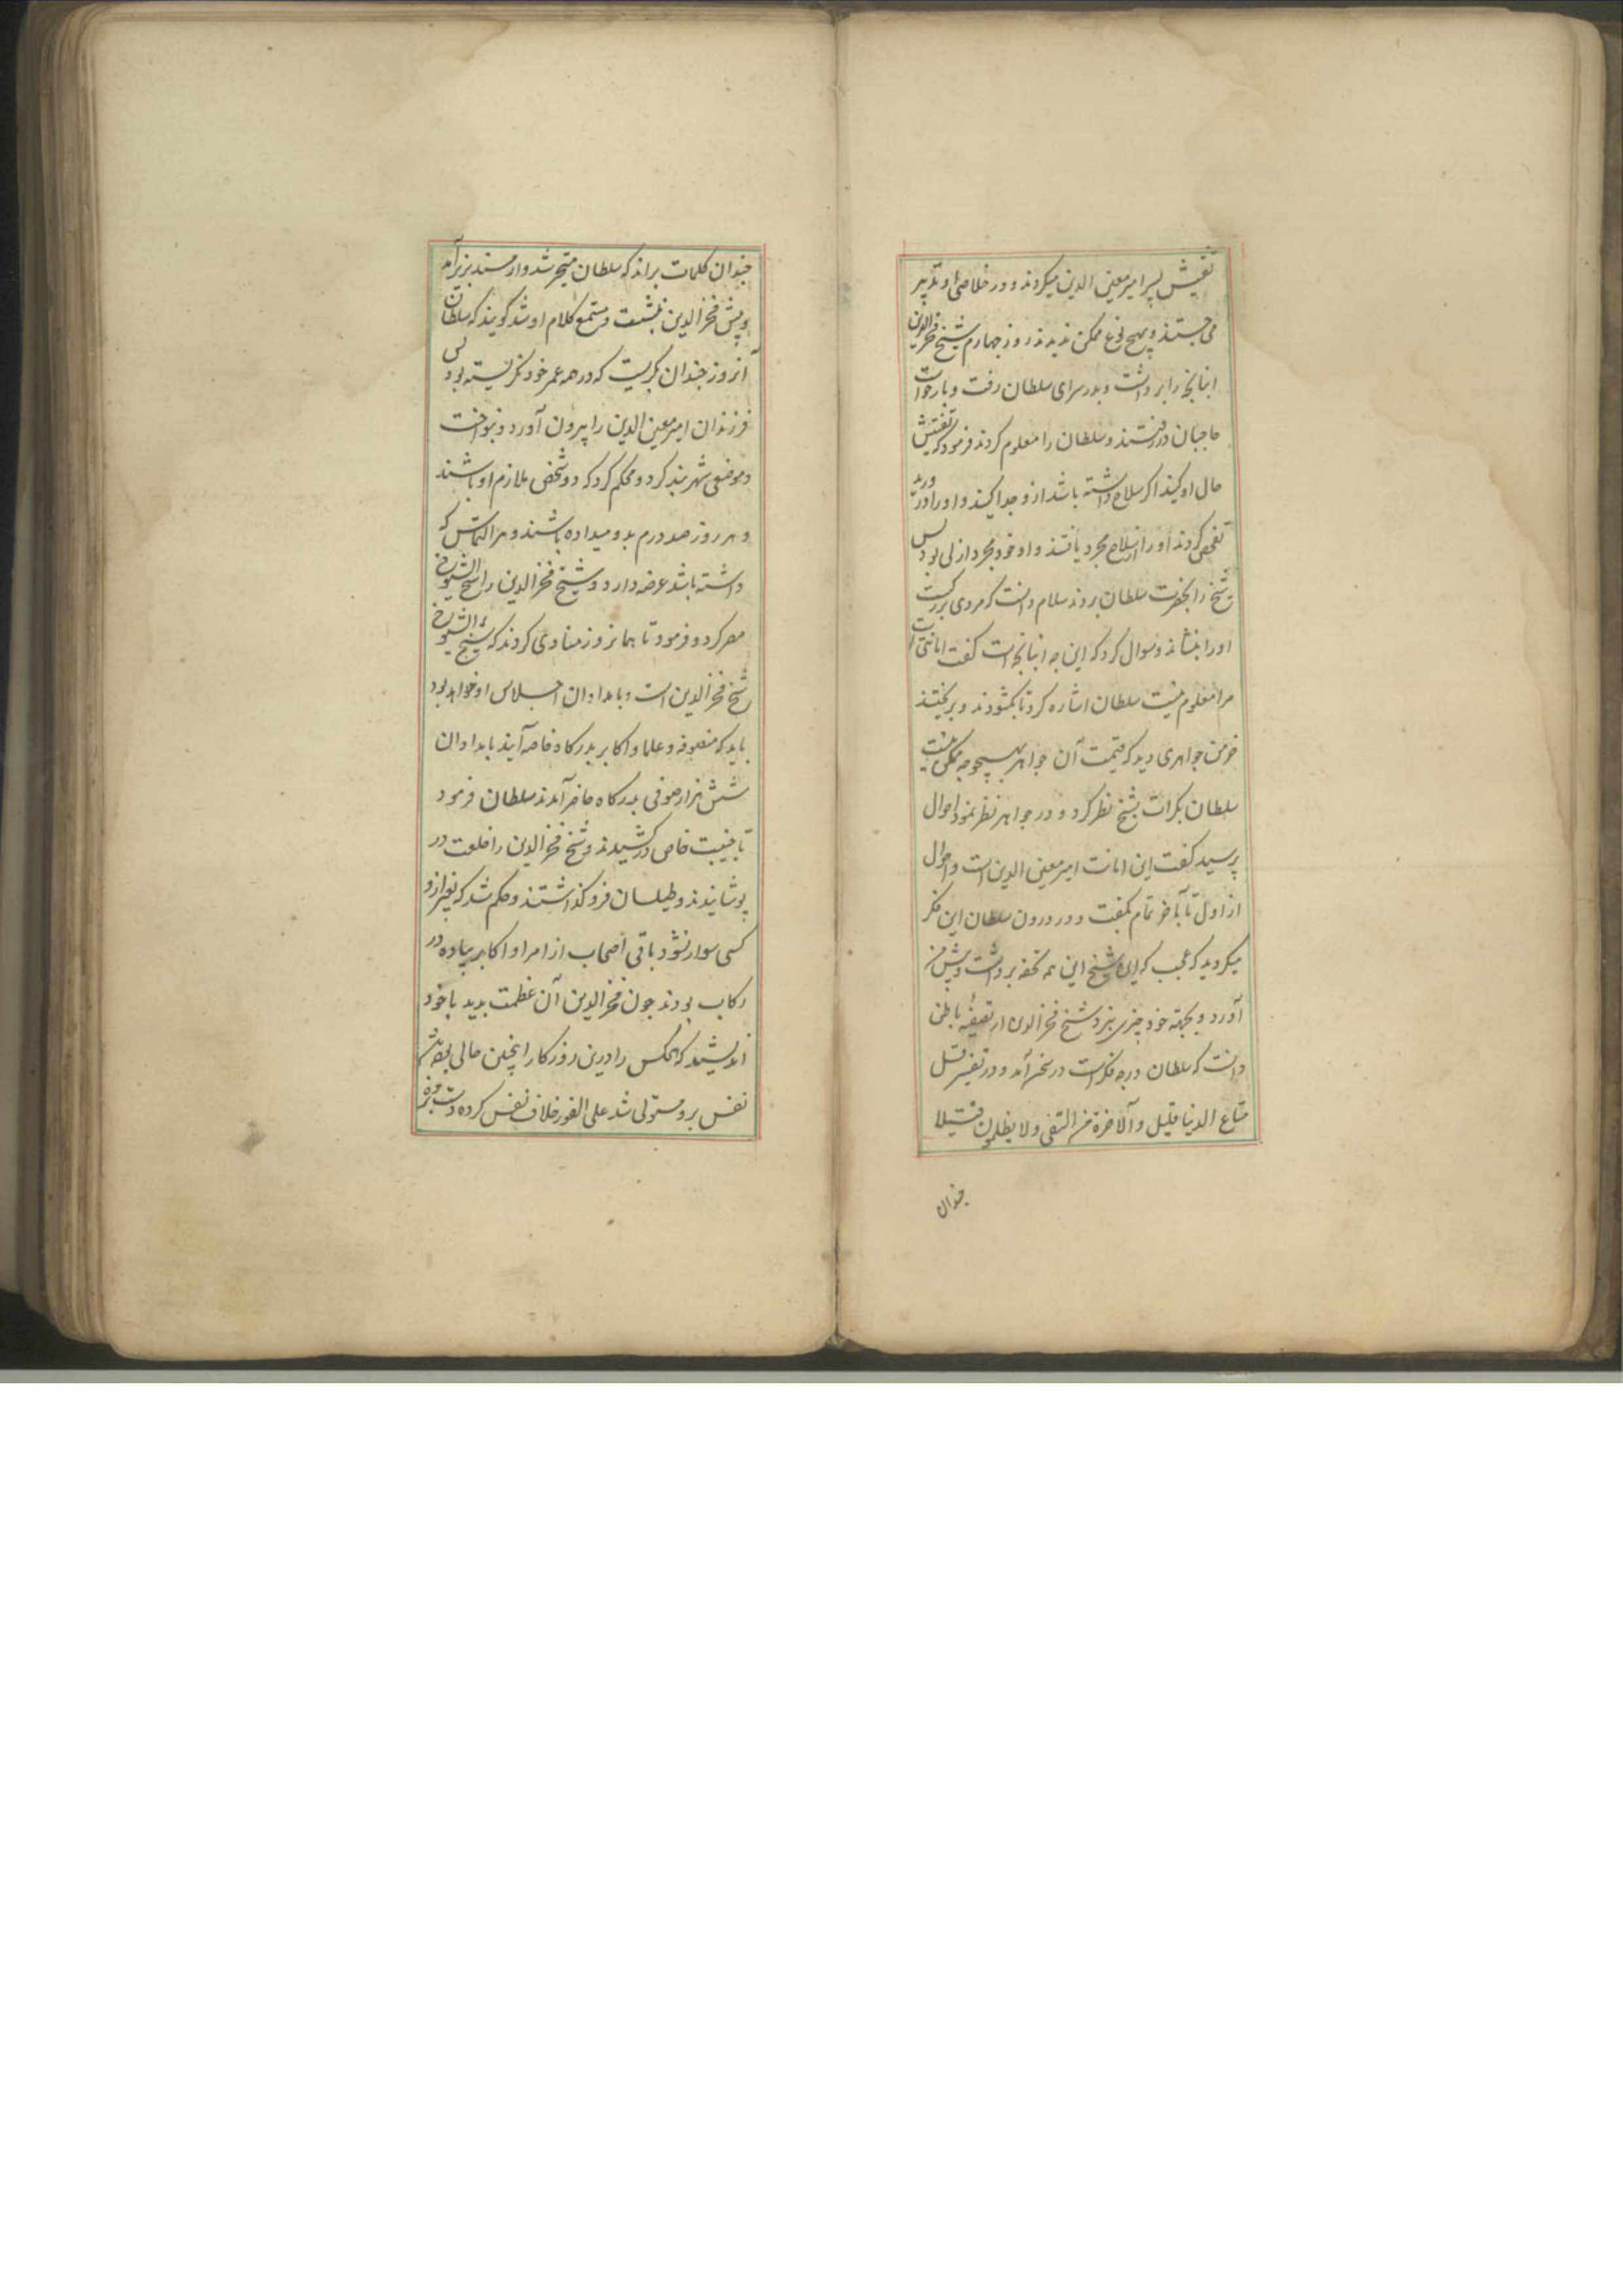 تفتیش پسر امیر معین الدین میکردند و در خلاص او تدبیر
می جستند و بهیچ نوع ممکن ندیدند روز چهارم شیخ فخر الدین
انبانچه را برداشت و بدر سرای سلطان رفت و بار خواست
حاجبان در رفتند و سلطان را معلوم کردند فرمود که تفتیش
حال او کنید اگر سلاح داشته باشد ازو جدا کنید و او را در آورید
تفحص کردند او را از سلاح مجرد یافتند و او خود مجرد ازلی بود پس
شیخ را بحضرت سلطان بردند سلام دانست که مردی بزرگست
او را بنشاند و سوال کرد که این چه انبانچه است گفت امانتی است
مرا معلوم نیست سلطان اشاره کرد تا بگشودند و بریختند
خرمن جواهری دید که قیمت آن جواهر بهیچوجه ممکن نیست
سلطان بکرات بشیخ نظر کرد و در جواهر نظر نمود احوال
پرسید گفت این امانت امیر معین الدین است و احوال
از اول تا بآخر تمام بگفت و در درون سلطان این فکر
میکردید که عجب که این شیخ این همه تحفه برداشت و پیش من
آورد و بجهة خود چیزی نبرد شیخ فخر الدین از تصفیه باطن
دانست که سلطان در چه فکر است در سخن آمد و در تفسیر قل
متاع الدنیا قلیل و آلاخرة خیر لمن اتقی و لا یظلمون فتیلا
چندان
چندان کلمات براند که سلطان متحیر شد و از مسند بزیر آمد
و پیش فخر الدین بنشست و مستمع کلام او شد گویند که سلطان
آنروز چندان بگریست که در همه عمر خود نگریسته بود پس
فرزندان امیر معین الدین را بیرون آورد و بنواخت
و موضعی شهر بند کرد و محکم کرد که دو شخص ملازم او باشند
و هر روز صد درم بدو میداده باشند و هر التماس که
داشته باشد عرضه دارد و شیخ فخر الدین را شیخ الشیوخ
مصر کرد و فرمود تا همانروز منادی کردند که شیخ الشیوخ
شیخ فخر الدین است و بامدادان اجلاس او خواهد بود
باید که متصوفه و علما و اکابر بدرکاه خاصه آیند بامدادان
شش هزار صوفی بدرکاه حاضر آمدند سلطان فرمود
تا جنیبت خاص در کشیدند و شیخ فخر الدین را خلعت در
پوشانیدند و طیلسان فرو گذاشتند و حکم شد که بغیر ازو
کسی سوار نشود باقی اصحاب از امرا و اکابر پیاده در
رکاب بودند چون فخر الدین آن عظمت بدید با خود
اندیشید که هیچکس را درین روزکار اینچنین حالی نبوده باشد
نفس برو مستولی شد علی الفور خلاف نفس کرده دست